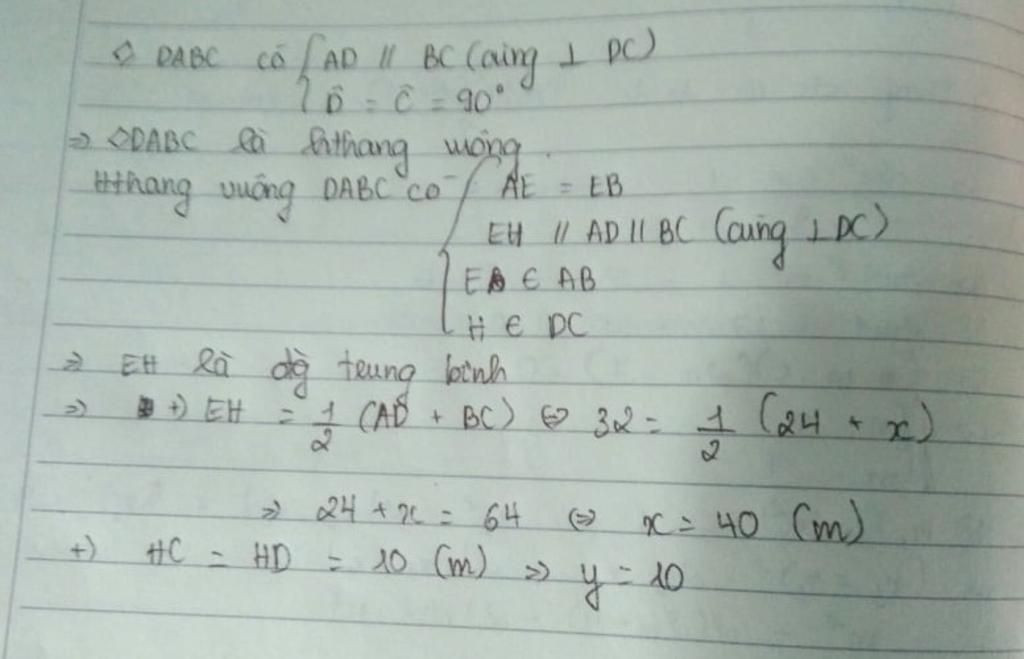 ◇ DABC có { AD // BC (cùng ⊥ DC)
D̂ = Ĉ = 90°
⇒ ◇DABC là hthang vuông.
Hthang vuông DABC có { AE = EB
EH // AD // BC (cùng ⊥ DC)
E ∈ AB
H ∈ DC
⇒ EH là đg trung bình
⇒ +) EH = 1/2 (AD + BC) ⇔ 32 = 1/2 (24 + x)
⇒ 24 + x = 64 ⇔ x = 40 (m)
+) HC = HD = 10 (m) ⇒ y = 10